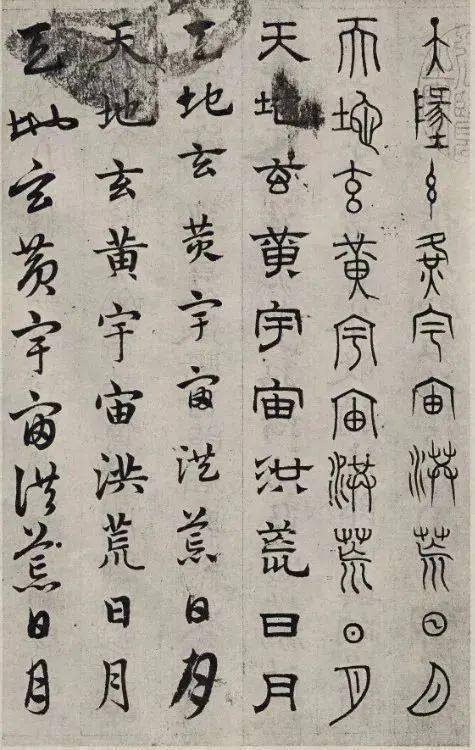 天地玄黃宇宙洪荒日月
天地玄黃宇宙洪荒日月
天地玄黃宇宙洪荒日月
天地玄黃宇宙洪荒日月
天地玄黃宇宙洪荒日月
天地玄黃宇宙洪荒日月